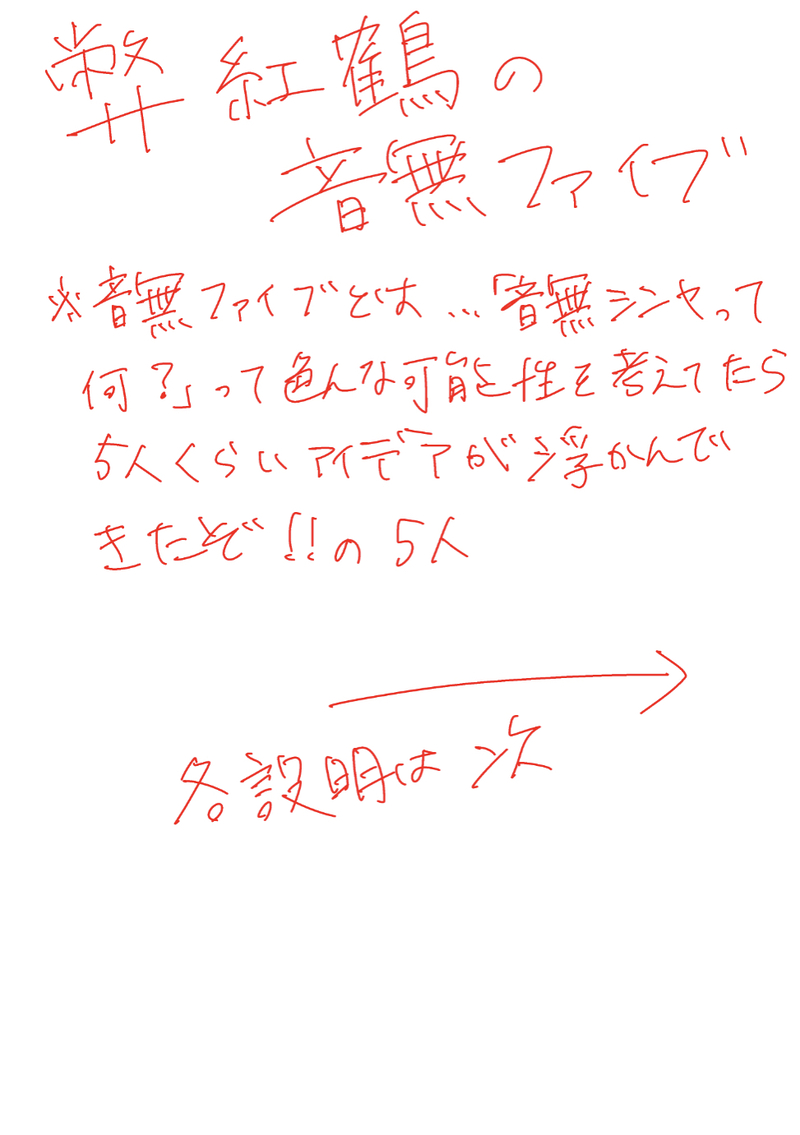 弊紅鶴の
音無ファイブ
※音無ファイブとは…「音無シンヤって
何？」って色んな可能性を考えてたら
5人くらいアイデアが浮かんで
きたぞ!!の5人
各説明は次